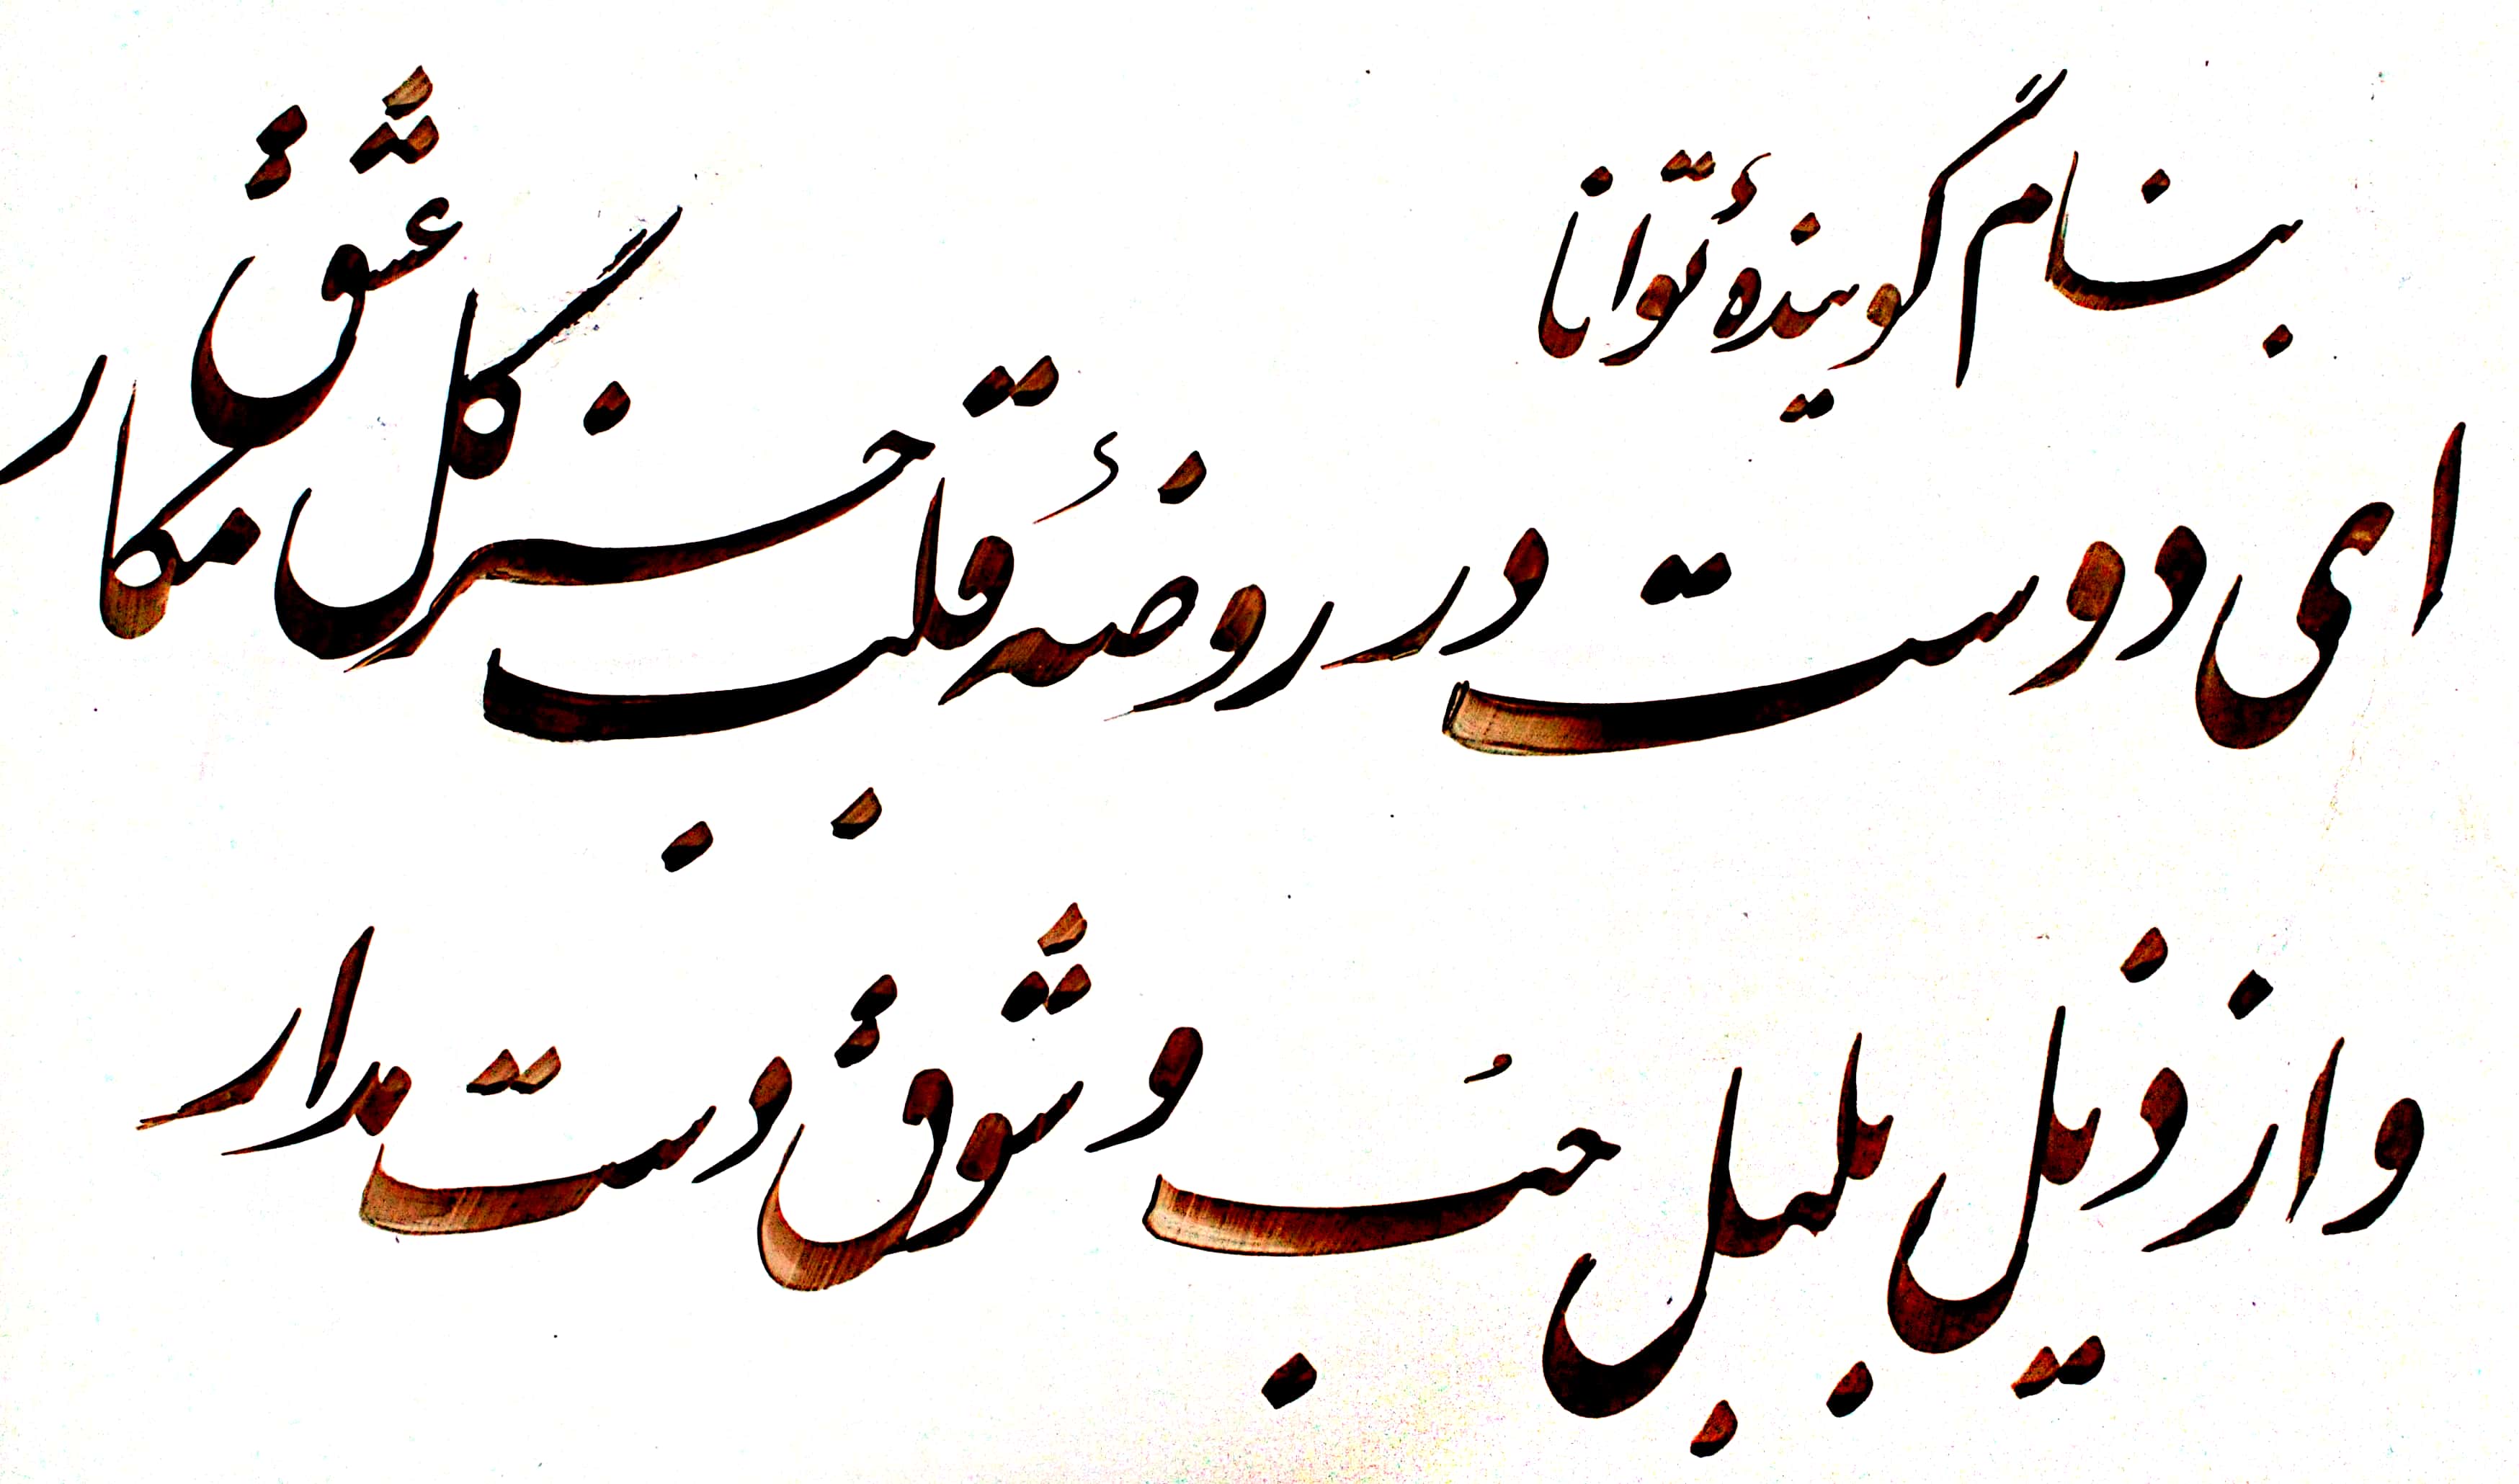 بنام گویندهٔ توانا
ای دوست در روضهٔ قلب جز گل عشق مکار
و از ذیل بلبل حُب و شوق دست مدار